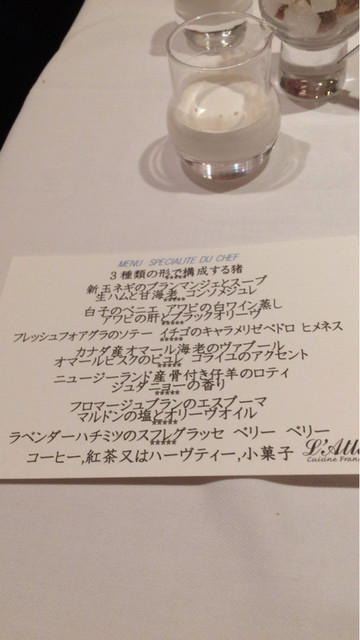 MENU SPECIALITE DU CHEF
3種類の形で構成する猪
*****
新玉ネギのブランマンジェとスープ
生ハムと甘海老、コンソメジュレ
*****
白子のベニエ アワビの白ワイン蒸し
アワビの肝とブラックオリーヴ
*****
フレッシュフォアグラのソテー イチゴのキャラメリゼペドロ ヒメネス
*****
カナダ産オマール海老のヴァプール
オマールビスクのピュレ ゴライユのアクセント
*****
ニュージーランド産骨付き仔羊のロティ
ジュダニョーの香り
*****
フロマージュブランのエスプーマ
マルドンの塩とオリーヴオイル
*****
ラベンダーハチミツのスフレグラッセ ベリー ベリー
*****
コーヒー,紅茶又はハーヴティー,小菓子
L'Att
Cuisine Fran